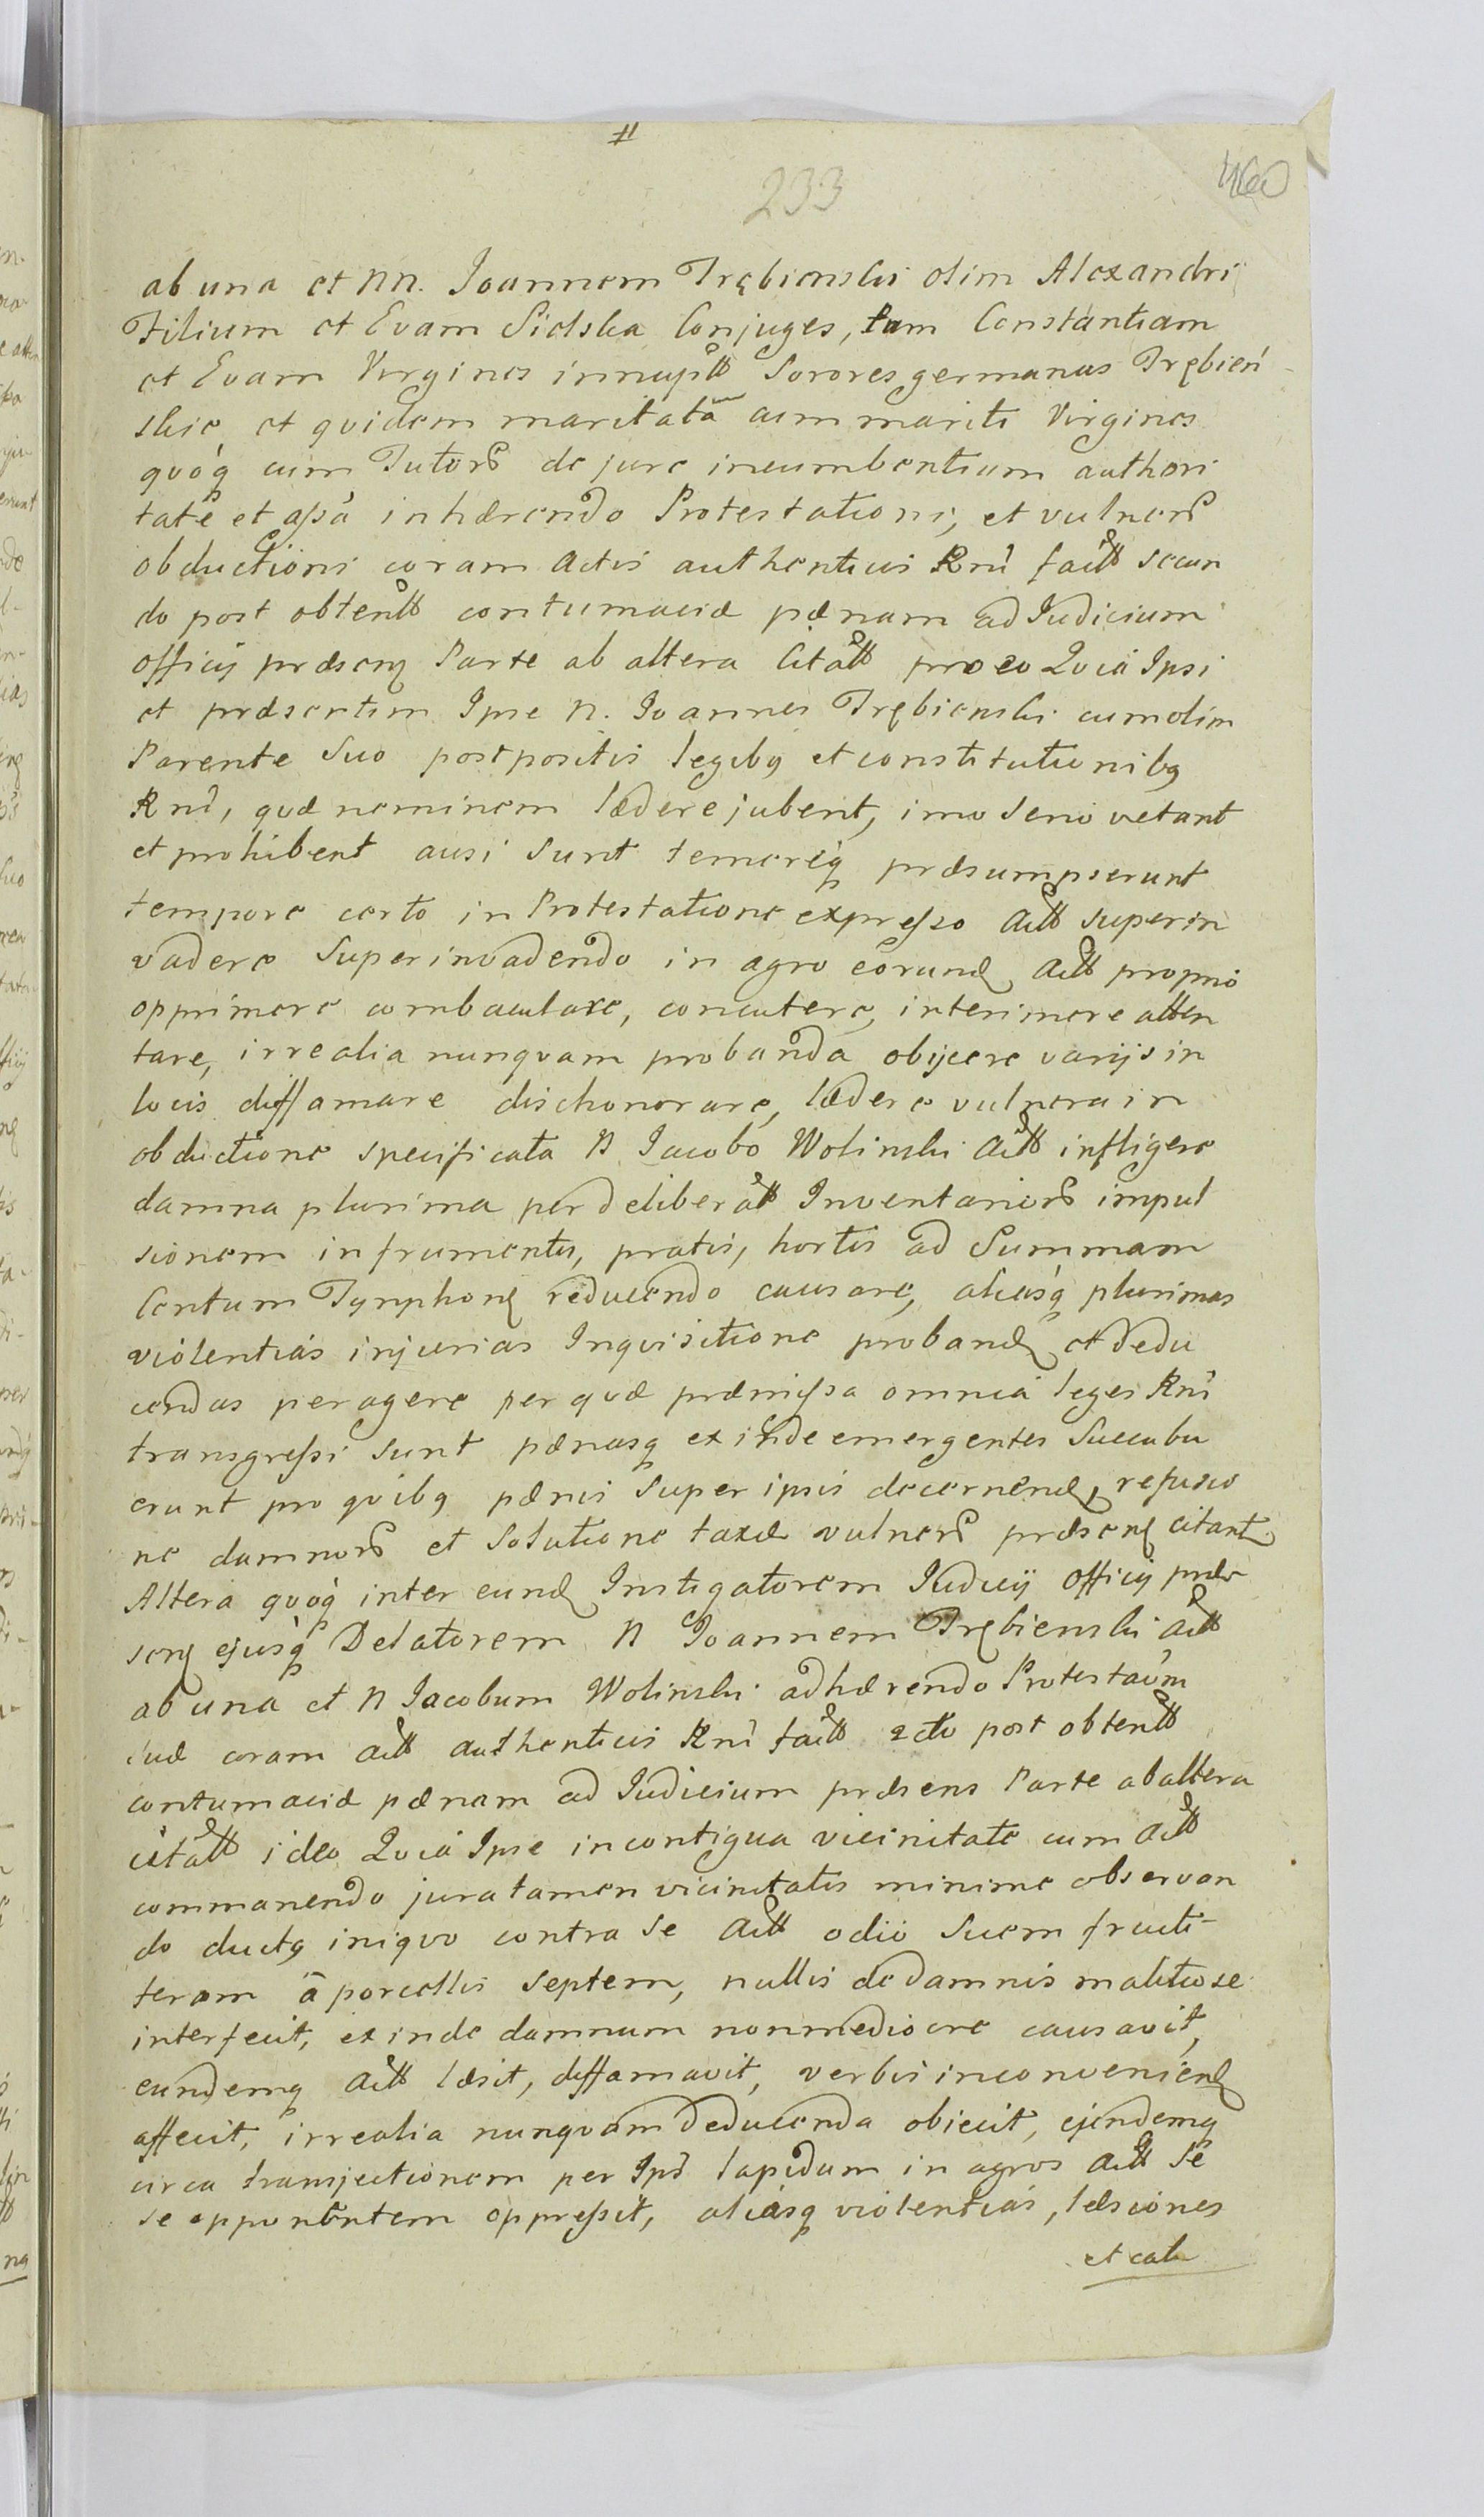 #
233
460
ab una et NN. Joannem Trębienski olim Alexandri
Filium et Evam Sielska Conjuges, tum Constantiam
et Evam Virgines innuptt Sorores germanas Trębień
skie, et qvidem maritatã cum mariti Virgines
qvoq cum Tutorũ de jure incumbentium authori
tate et assã inhærendo Protestationi, et vulnerũ
obductioni coram Actis authenticis Rnĩ factt secun
do post obtentt contumaciæ pænam ad Judicium
officij præsenꝭ Parte ab altera Citatt pro eo Qvia Ipsi
et præsertim Ipse N. Joannes Trębienski cum olim
Parente Suo postpositis legibꝰ et constitutionibꝰ
Rnĩ, qvæ neminem lædere jubent, imo Serio vetant
et prohibent ausi Sunt temereq præsumpserunt
tempore certo in Protestatione expresso Actt superin
vadere Superinvadendo in agro eorund Actt proprio
opprimere combaculare, concutere, interimere atten
tare, irrealia nunqvam probanda objicere varijs in
locis diffamare dischonorare, lædere vulnera in
obductione specificata N Jacobo Wolinski Actt infligere
damna plurima per deliberatt Inventariorũ impul
sionem in frumentis, pratis, hortis ad Summam
Centum Tynphonꝭ reducendo causare, aliasq plurimas
violentias injurias Inqvisitione proband et dedu
cendas peragere per qvæ præmissa omnia leges Rnĩ
transgressi Sunt pænasq exinde emergentes Succubu
erunt pro qvibꝰ pænis Super ipsis decernend, refusio
ne damnorũ et Solutione taxæ vulnerũ præsenꝭ citant
Altera qvoq inter eund Instigatorem Judicij officij præ
senꝭ ejusq Delatorem N Joannem Trębienski Actt
ab una et N Jacobum Wolinski adhærendo Protestaõni
suæ coram Actt authenticis Rnĩ factt 2do post obtentt
contumaciæ pænam ad Judicium præsens Parte ab altera
citatt ideo Qvia Ipse in contigua vicinitate cum Actt
commanendo jura tamen vicinitatis minime observan
do ductꝰ iniqvo contra se Actt odio Suem fructi-
feram ã porcellis Septem, nullis de damnis malitiose
interfecit, exinde damnum non mediocre causavit,
eundemq Actt læsit, diffamavit, verbis inconveniend
affecit, irrealia nunqvam deducenda objecit, ejusdemq
circa transjectionem per Ips lapidum in agros Actt Se
se opponentem oppressit, aliasq violentias, læsiones
et cala